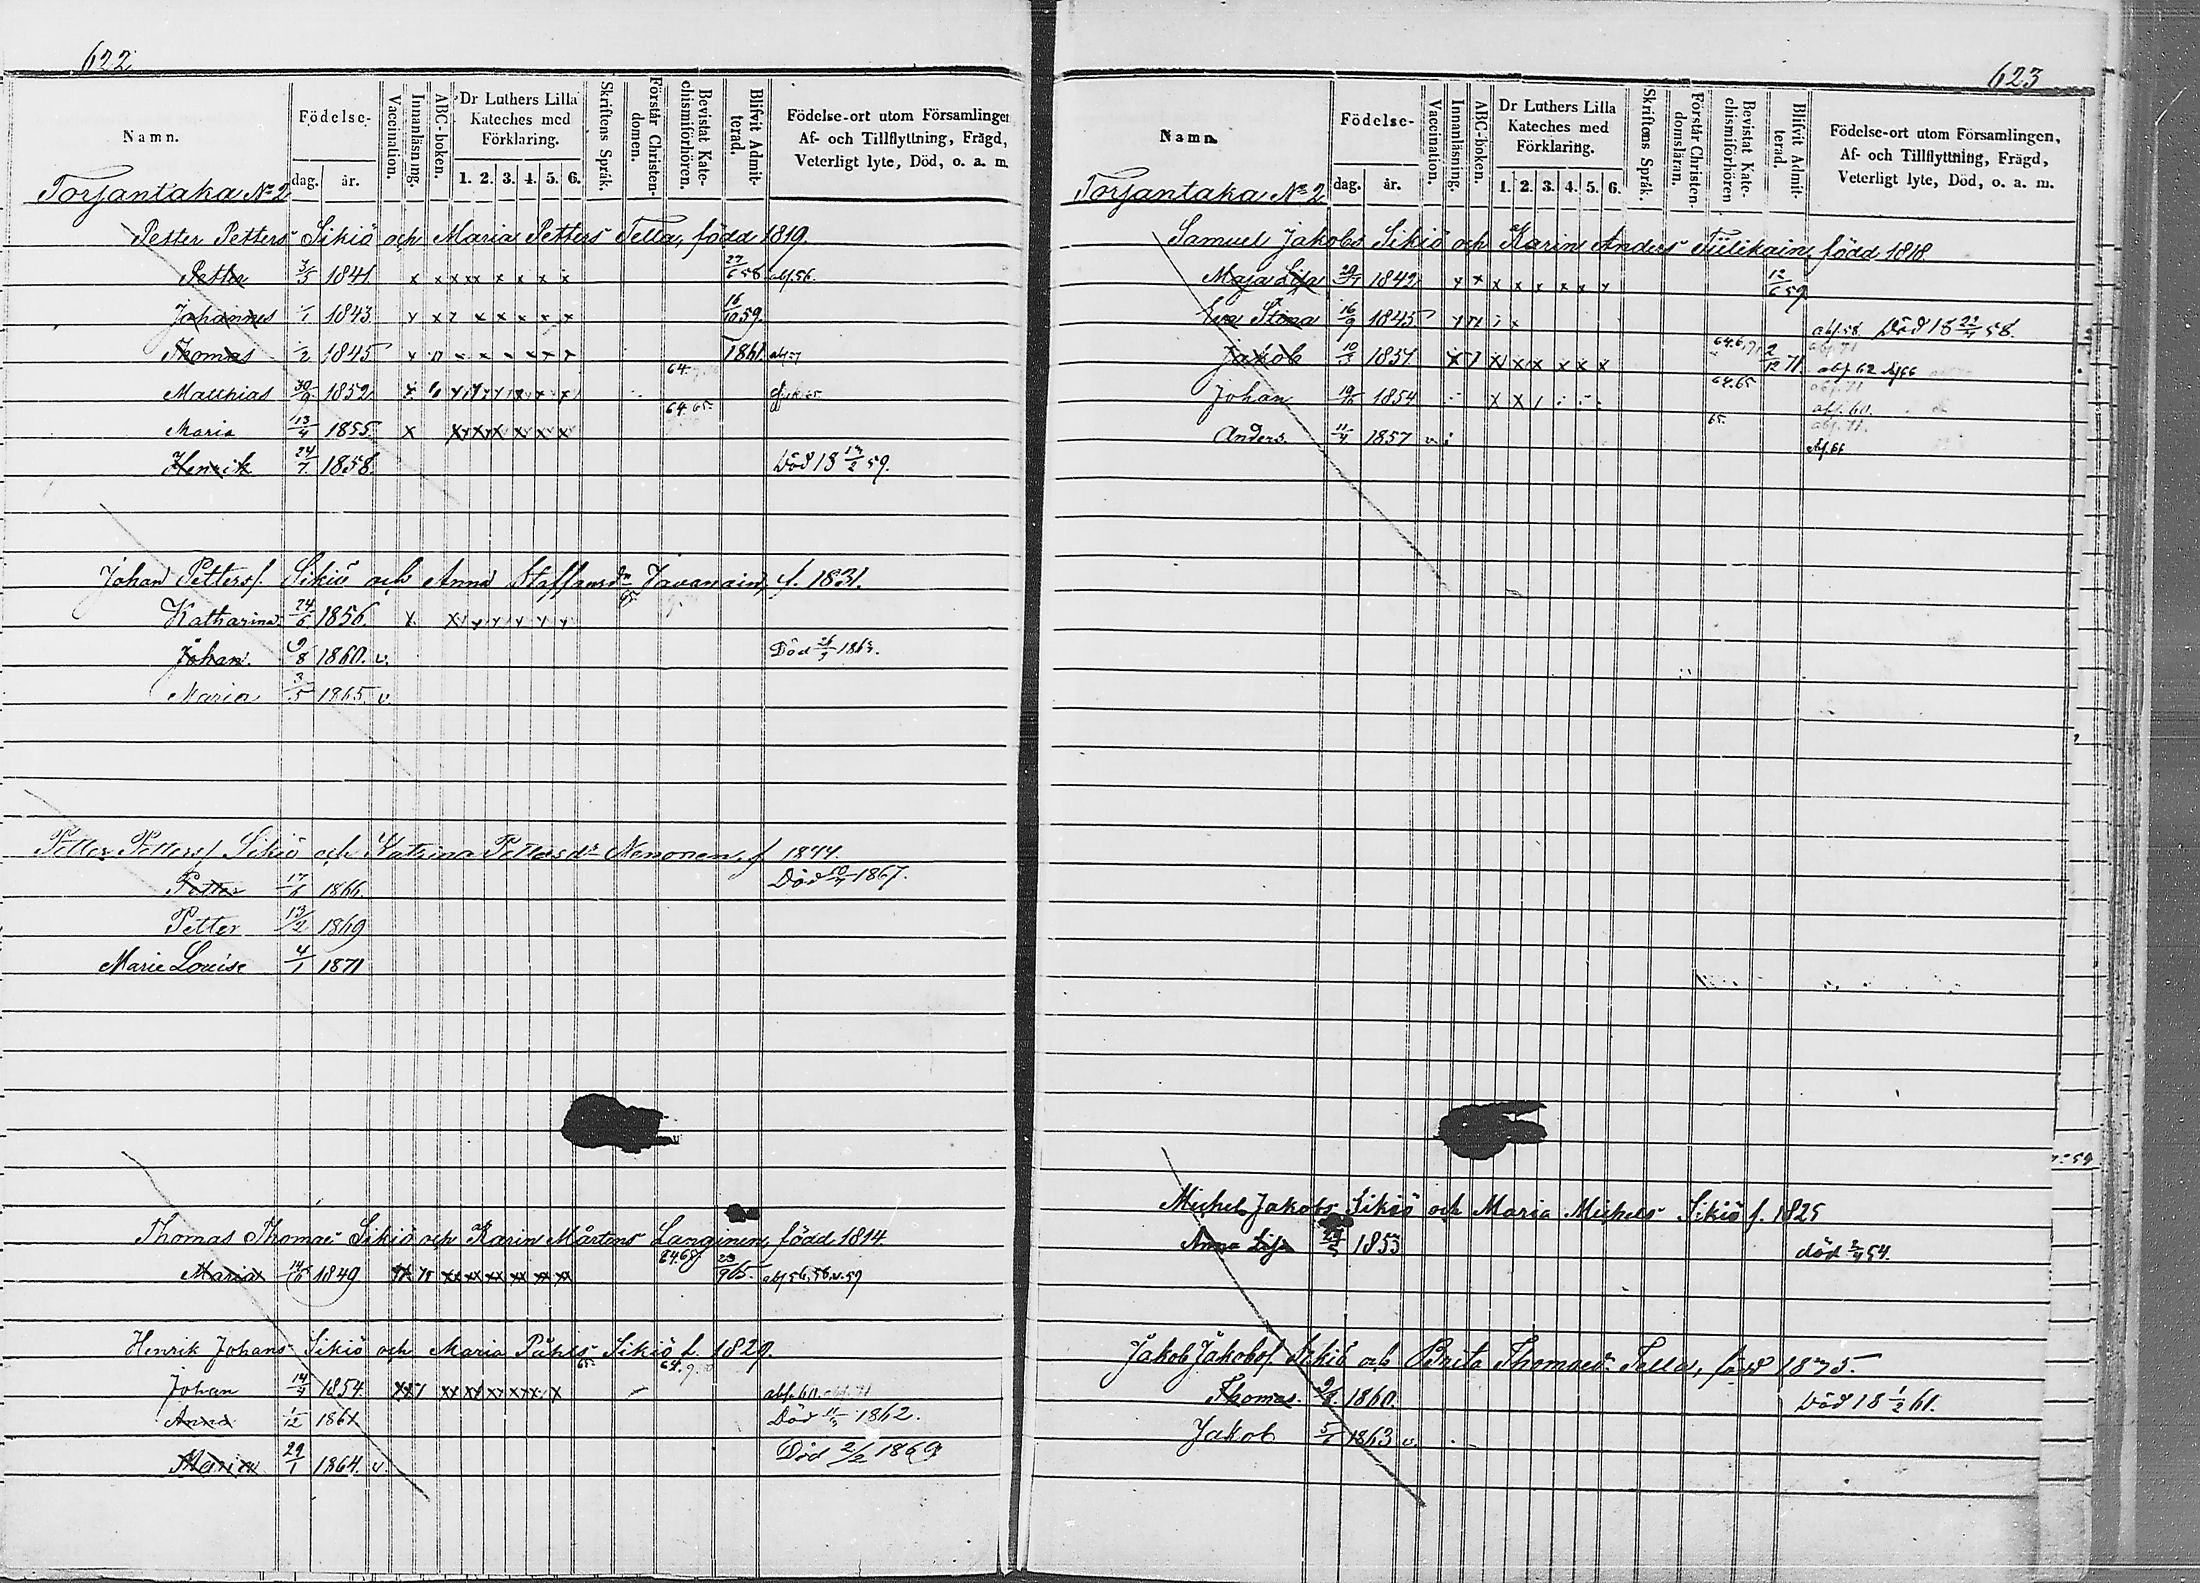 622
Namn. Födelse- dag. år. Vaccination. Innanläsning. ABC-boken. Dr Luthers Lilla Kateches med Förklaring. 1. 2. 3. 4. 5. 6. Skriftens Språk. Förstår Christendomen. Bevistat Katechismiförhören. Blifvit Admitterad. Födelse-ort utom Församlingen Af- och Tillflyttning, Frägd, Veterligt lyte, Död, o. a. m.
Torjantaka No 2
Petter Petters Sikiö och Maria Petters Tella, född 1819.
Petter 3/5 1841 x x x x x x x x x 27/6 58 abf. 56.
Johannes 1/1 1843 16/10 59.
Thomas 1/2 1845 1861
Matthias 30/9 1852 64.
Maria 13/4 1855. 64. 65.
Henrik 24/7 1858 Död 18 17/2 59.
Johan Petters. Sikiö och Anna Staffansdr Javanain, f. 1831.
Katharina 24/6 1856.
Johan. 9/8 1860. v. Död 26/3 1863.
Maria 3/5 1865. v.
Petter Petters Sikiö och Katrina Pettersdr Nenonen. f 1844.
Petter 17/6 1866. Död 1867.
Petter 13/2 1869
Marie Louise 4/1 1871
Thomas Thomae Sikiö och Karin Mårtens Langinen, född 1814.
Maria 14/10 1849 23/9 65. abf 56, 58 v. 59
Henrik Johans Sikiö och Maria Påhls Sikiö f. 1829.
Johan 14/4 1854. 64. abf. 60.
Anna 1/12 1861 Död 1862.
Maria 29/1 1864. v. Död 2/2 1869
623
Namn. Födelse- dag. år. Vaccination. Innanläsning. ABC-boken. Dr Luthers Lilla Kateches med Förklaring. 1. 2. 3. 4. 5. 6. Skriftens Språk. Förstår Christendomsläran. Bevistat Katechismiförhören Blifvit Admitterad. Födelse-ort utom Församlingen, Af- och Tillflyttning, Frägd, Veterligt lyte, Död, o. a. m.
Torjantaka No 2
Samuel Jakobs Sikiö och Karin Anders Tiilikain, född 1818.
Maja Lisa 1842 12/6 59
Eva Stina 16/9 1845 abf. 58. Död 18 58.
Jakob 10/3 1851 2/12 71. abf 62 abf 66
Johan 1854 64. 65 abf. 60.
Anders. 11/4 1857 65. abf. 71. abf. 66
Michel Jakobs Sikiö och Maria Michels Sikiö f. 1825
Anna Lisa 1853 död 54.
Jakob Jakobs. Sikiö och Brita Thomaedr Tella, född 1835.
Thomas. 1860. Död 18 1/2 61.
Jakob 1863 v.